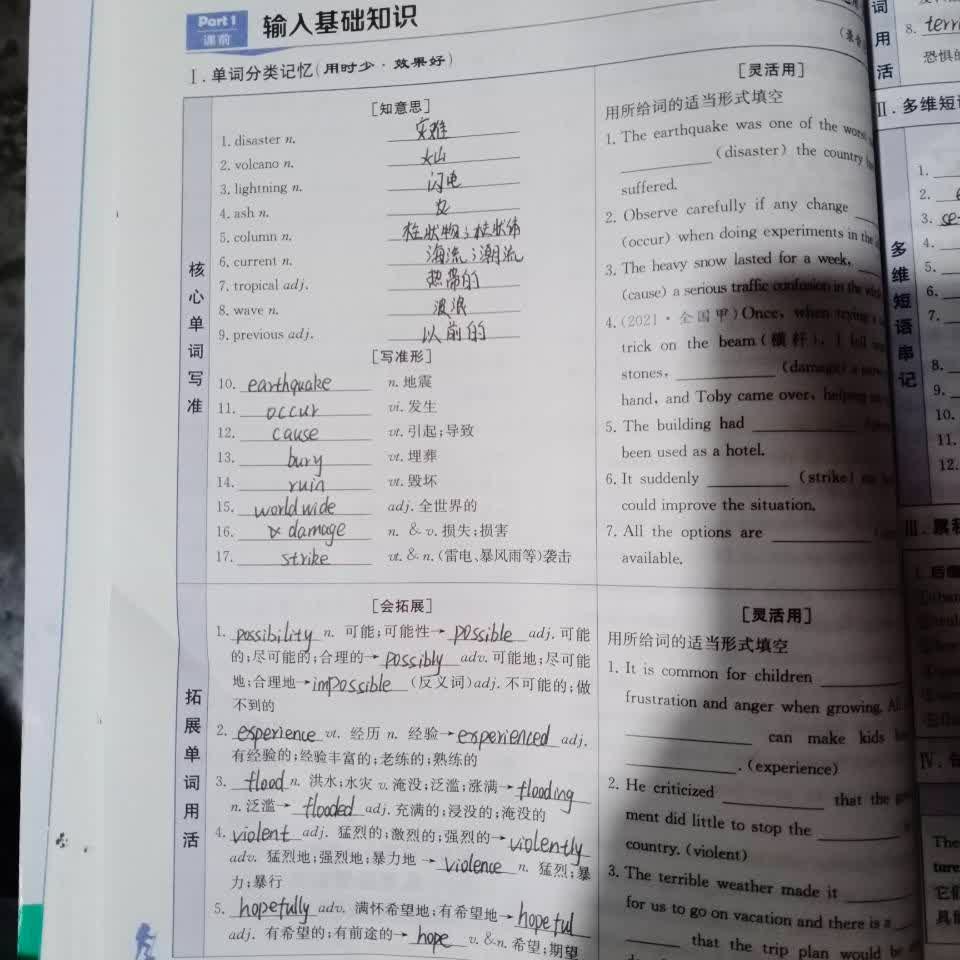 Part 1
课前
输入基础知识
Ⅰ.单词分类记忆(用时少·效果好)
核心单词写准
[知意思]
1. disaster n. 灾难
2. volcano n. 火山
3. lightning n. 闪电
4. ash n. 灰
5. column n. 柱状物;柱状体
6. current n. 海流;潮流
7. tropical adj. 热带的
8. wave n. 波浪
9. previous adj. 以前的
[写准形]
10. earthquake n. 地震
11. occur vi. 发生
12. cause vt. 引起;导致
13. bury vt. 埋葬
14. ruin vt. 毁坏
15. worldwide adj. 全世界的
16. damage n. & v. 损失;损害
17. strike vt. & n. (雷电、暴风雨等)袭击
[灵活用]
用所给词的适当形式填空
1. The earthquake was one of the
(disaster) the country
suffered.
2. Observe carefully if any change
(occur) when doing experiments in the
3. The heavy snow lasted for a week,
(cause) a serious traffic confusion in the
4. (2021·全国甲) Once, when trying
trick on the beam(横杆), I fell
stones, (damage)
hand, and Toby came over, helping
5. The building had
been used as a hotel.
6. It suddenly (strike)
could improve the situation.
7. All the options are
available.
拓展单词用活
[会拓展]
1. possibility n. 可能;可能性→possible adj. 可能
的;尽可能的;合理的→possibly adv. 可能地;尽可能
地;合理地→impossible (反义词)adj. 不可能的;做
不到的
2. experience vt. 经历 n. 经验→experienced adj.
有经验的;经验丰富的;老练的;熟练的
3. flood n. 洪水;水灾 v. 淹没;泛滥;涨满→flooding
n. 泛滥→flooded adj. 充满的;浸没的;淹没的
4. violent adj. 猛烈的;激烈的;强烈的→violently
adv. 猛烈地;强烈地;暴力地→violence n. 猛烈;暴
力;暴行
5. hopefully adv. 满怀希望地;有希望地→hopeful
adj. 有希望的;有前途的→hope v. &n. 希望;期望
[灵活用]
用所给词的适当形式填空
1. It is common for children
frustration and anger when growing.
can make kids
.(experience)
2. He criticized that the
ment did little to stop the
country. (violent)
3. The terrible weather made it
for us to go on vacation and there is a
that the trip plan would be
词用活
8.
恐惧的
Ⅱ.多维短
多维短语串记
1.
2.
3.
4.
5.
6.
7.
8.
9.
10.
11.
12.
Ⅲ.
Ⅳ.
The
它们